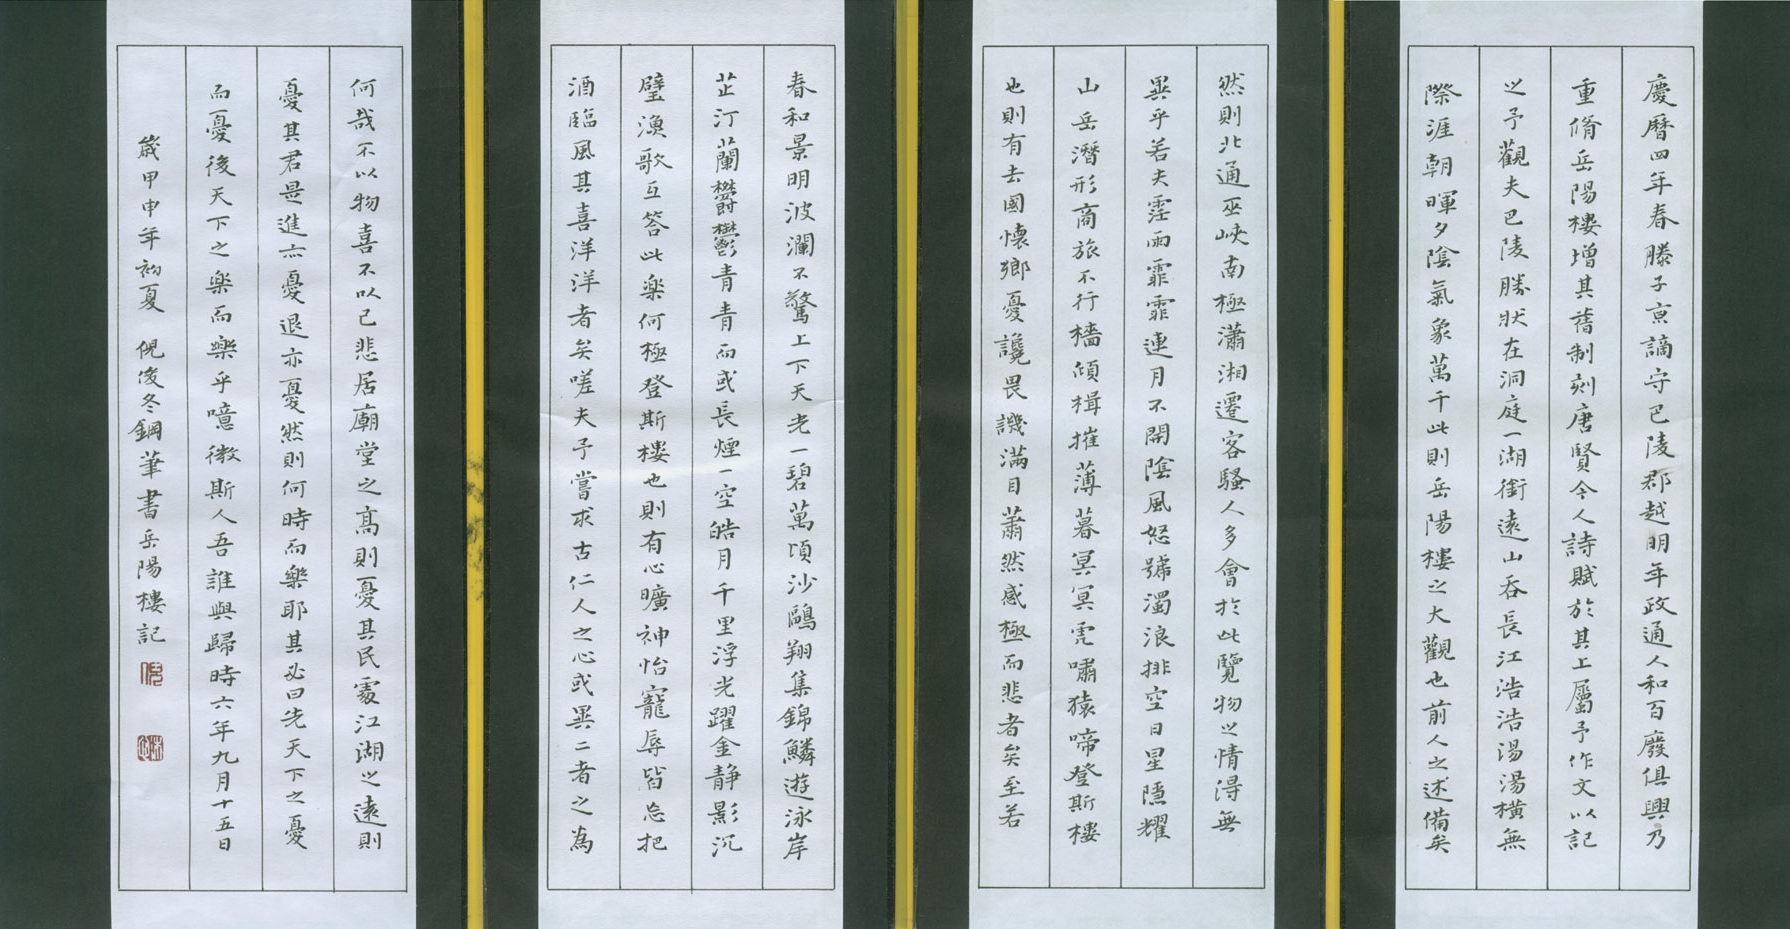 慶曆四年春滕子京謫守巴陵郡越明年政通人和百廢俱興乃
重脩岳陽樓增其舊制刻唐賢今人詩賦於其上屬予作文以記
之予觀夫巴陵勝狀在洞庭一湖銜遠山吞長江浩浩湯湯橫無
際涯朝暉夕陰氣象萬千此則岳陽樓之大觀也前人之述備矣
然則北通巫峽南極瀟湘遷客騷人多會於此覽物之情得無
異乎若夫霪雨霏霏連月不開陰風怒號濁浪排空日星隱耀
山岳潛形商旅不行檣傾楫摧薄暮冥冥虎嘯猿啼登斯樓
也則有去國懷鄉憂讒畏譏滿目蕭然感極而悲者矣至若
春和景明波瀾不驚上下天光一碧萬頃沙鷗翔集錦鱗遊泳岸
芷汀蘭鬱鬱青青而或長煙一空皓月千里浮光躍金靜影沉
璧漁歌互答此樂何極登斯樓也則有心曠神怡寵辱皆忘把
酒臨風其喜洋洋者矣嗟夫予嘗求古仁人之心或異二者之為
何哉不以物喜不以己悲居廟堂之高則憂其民處江湖之遠則
憂其君是進亦憂退亦憂然則何時而樂耶其必曰先天下之憂
而憂後天下之樂而樂乎噫微斯人吾誰與歸時六年九月十五日
歲甲申年初夏 倪俊冬鋼筆書岳陽樓記